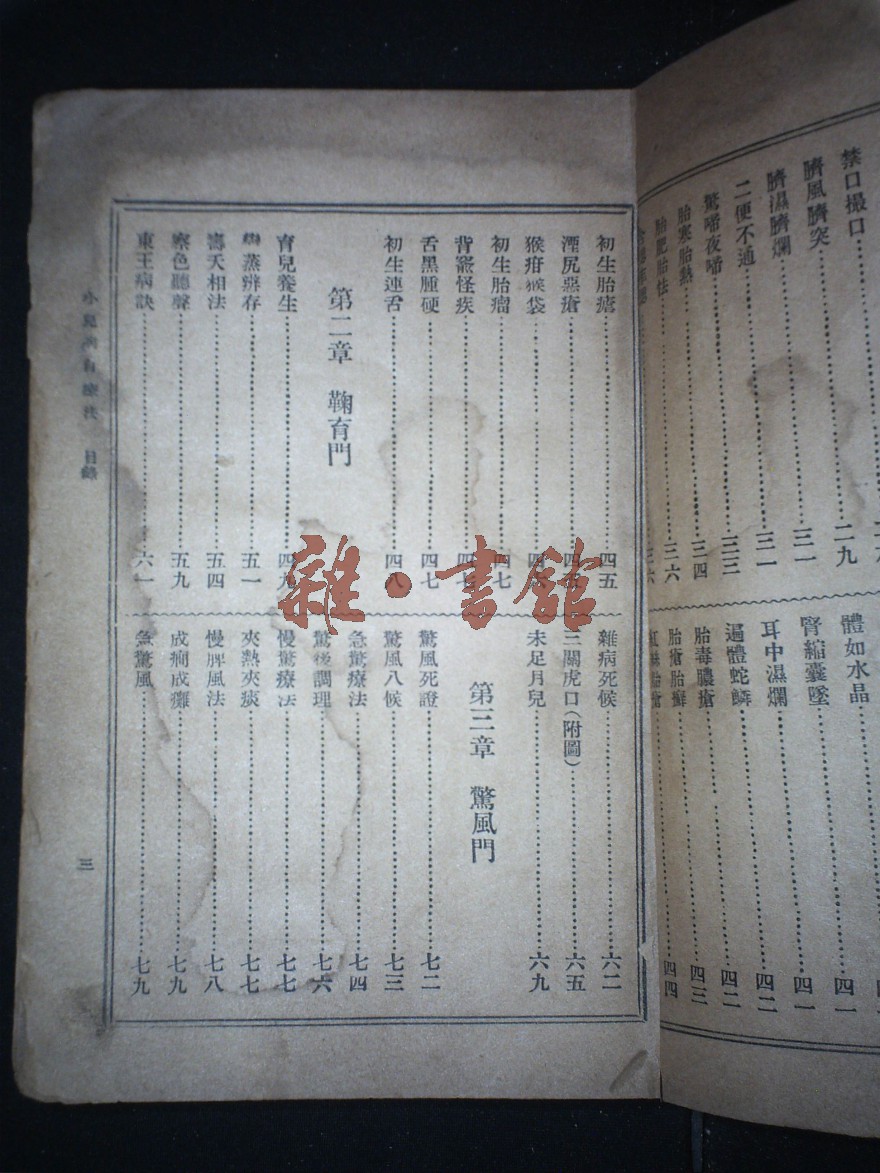 禁口撮口
臍風臍突……二九
臍濕臍爛……三一
二便不通……三一
驚啼夜啼……三三
胎寒胎熱……三四
胎肥胎怯……三六
三六
體如水晶……四一
腎縮囊墜……四一
耳中濕爛……四二
遍體蛇鱗……四二
胎毒膿瘡……四三
胎瘡胎癬……四四
初生胎瘧……四五
湮尻惡瘡……四五
猴疳猴袋
初生胎瘤……四七
背叢怪疾……四七
舌黑腫硬……四七
初生連舌……四八
第二章 鞠育門
育兒養生……四九
變蒸辨存……五一
壽夭相法……五四
察色聽聲……五九
東王病訣……六一
雜病死候……六二
三關虎口(附圖)……六五
未足月兒……六九
第三章 驚風門
驚風死證……七二
驚風八候……七三
急驚療法……七四
驚後調理……七六
慢驚療法……七七
夾熱夾痰……七七
慢脾風法……七八
成癎成癱……七九
急驚風……七九
小兒 療法 目錄
三
雜·書館